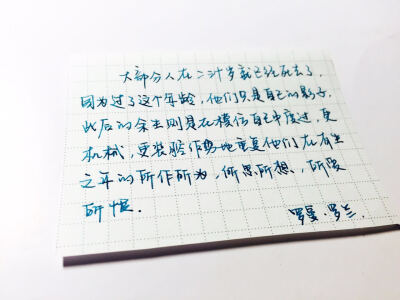 大部分人在二三十岁就已经死去了,
因为过了这个年龄,他们只是自己的影子,
此后的余生则是在模仿自己中度过,更
机械,更装腔作势地重复他们在有生
之年的所作所为,所思所想,所爱
所恨.
罗曼·罗兰.